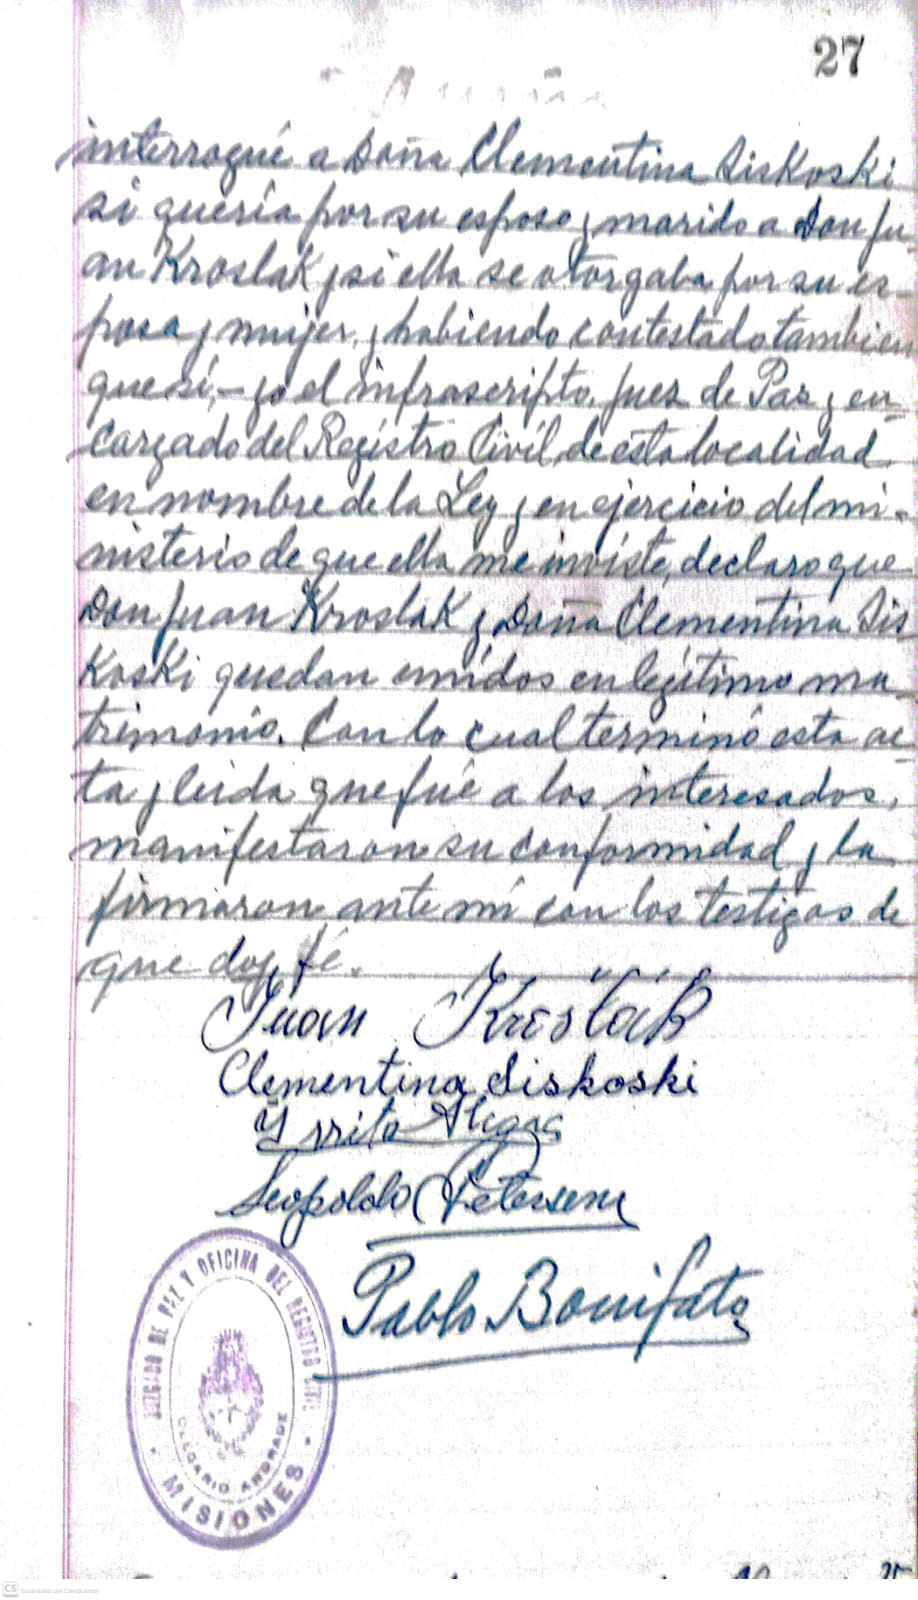 27
interrogué a Doña Clementina Siskoski
si quería por su esposo y marido a Don Ju-
an Kroslak y si ella se otorgaba por su es-
posa y mujer, y habiendo contestado tambien
que sí,- yo el infrascripto, Juez de Paz y en-
cargado del Registro Civil de esta localidad
en nombre de la Ley y en ejercicio del mi-
nisterio de que ella me inviste, declaro que
Don Juan Kroslak y Doña Clementina Sis
Koski quedan unidos en legítimo ma-
trimonio. Con lo cual terminó esta ac-
ta y leida que fué a los interesados,
manifestaron su conformidad y la
firmaron ante mí con los testigos de
que doy fé.
Juan
Clementina Siskoski
Leopoldo Petersen
Pablo Bonifato
JUZGADO DE PAZ Y OFICINA DEL REGISTRO CIVIL
OLEGARIO ANDRADE
MISIONES
CS Escaneado con CamScanner